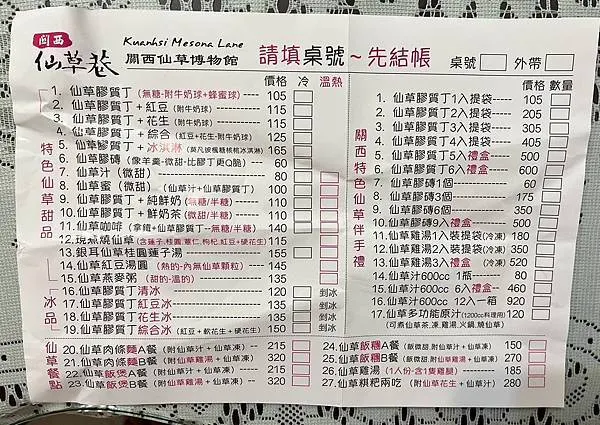 關西
仙草巷
Kuanhsi Mesona Lane
關西仙草博物館
請填桌號~先結帳
桌號 外帶
價格 冷 溫熱
特色仙草甜品
1. 仙草膠質丁(無糖-附牛奶球+蜂蜜球) --- 105
2. 仙草膠質丁+紅豆(附牛奶球) --- 115
3. 仙草膠質丁+花生(附牛奶球) --- 115
4. 仙草膠質丁+綜合(紅豆+花生-附牛奶球) 125
5. 仙草膠質丁+冰淇淋(莫凡彼楓糖核桃冰淇淋) 165
6. 仙草膠磚(像羊羹-微甜-比膠丁更Q脆) --- 60
7. 仙草汁(微甜) --- 80
8. 仙草蜜(微甜) (仙草汁+仙草膠質丁) --- 100
9. 仙草膠質丁+純鮮奶(無糖/半糖) --- 140
10. 仙草膠質丁+鮮奶茶(微甜/半糖) --- 110
11. 仙草咖啡(拿鐵+仙草膠質丁--無糖/半糖) 140
12. 現煮燒仙草(含蓮子.桂圓.薏仁.枸杞.紅豆+硬花生) 115
13. 銀耳仙草桂圓蓮子湯 --- 155
14. 仙草紅豆湯圓(熱的-內無仙草顆粒) --- 145
15. 仙草燕麥粥(甜的-溫的) --- 145
冰品
16. 仙草膠質丁清冰 --- 120 剉冰
17. 仙草膠質丁紅豆冰 --- 135 剉冰
18. 仙草膠質丁花生冰 --- 135 剉冰
19. 仙草膠質丁綜合冰(紅豆+軟花生+硬花生) 150 剉冰
價格 數量
關西特色仙草伴手禮
1. 仙草膠質丁1入提袋 ----- 105
2. 仙草膠質丁2入提袋 ----- 205
3. 仙草膠質丁3入提袋 ----- 305
4. 仙草膠質丁4入提袋 ----- 405
5. 仙草膠質丁5入禮盒 ----- 500
6. 仙草膠質丁6入禮盒 ----- 600
7. 仙草膠磚1個 --- 60
8. 仙草膠磚3個 --- 175
9. 仙草膠磚6個 --- 350
10. 仙草膠磚9入禮盒 --- 500
11. 仙草雞湯1入裝提袋(冷凍) 180
12. 仙草雞湯2入裝提袋(冷凍) 350
13. 仙草雞湯3入禮盒 (冷凍) 520
14. 仙草汁600cc 1瓶 --- 80
15. 仙草汁600cc 6入禮盒-- 460
16. 仙草汁600cc 12入一箱 920
17. 仙草多功能原汁(1200cc料理用) 120
(可煮仙草茶.凍.雞湯.火鍋.燒仙草)
仙草餐點
20. 仙草肉條麵A餐(附仙草汁+仙草凍) --- 215
21. 仙草肉條麵B餐(附仙草雞湯+仙草凍) --- 320
22. 仙草飯煲A餐(附仙草汁+仙草凍) --- 215
23. 仙草飯煲B餐(附仙草雞湯+仙草凍) --- 320
24. 仙草飯糰A餐(飯微甜.附仙草汁+仙草凍) 150
25. 仙草飯糰B餐(飯微甜.附仙草雞湯+仙草凍) 270
26. 仙草雞湯(1人份-含1隻雞腿) --- 185
27. 仙草粿粑兩吃(附仙草花生+仙草汁) 280